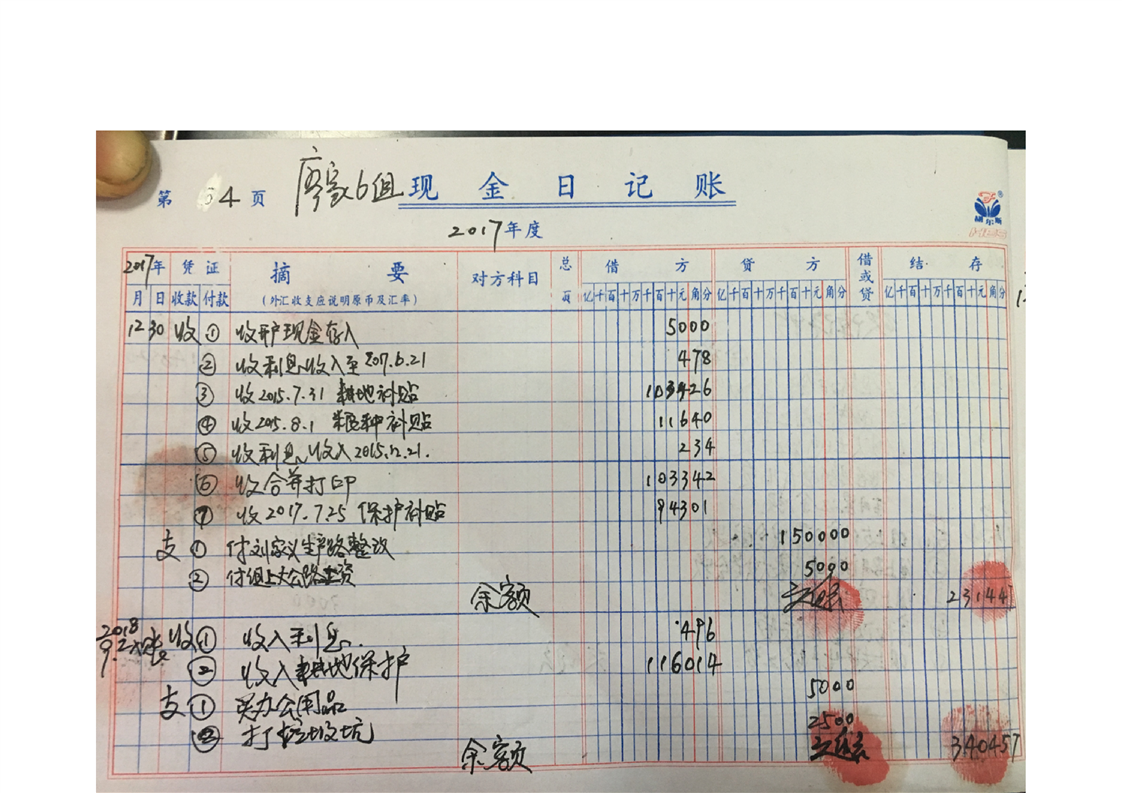 第 54 页 廖家6组 现金日记账
2017年度
2017年 凭证 摘要 对方科目 总页 借方 贷方 借或贷 结存
月 日 收款 付款 (外汇收支应说明原币及汇率) 亿千百十万千百十元角分 亿千百十万千百十元角分 亿千百十万千百十元角分
12 30 收 ① 收开户现金存入 5000
② 收利息收入至2017.6.21 478
③ 收2015.7.31 耕地补贴 103926
④ 收2015.8.1 粮种补贴 11640
⑤ 收利息收入2015.12.21. 234
⑥ 收合并打印 103342
⑦ 收2017.7.25 保护补贴 94301
支 ① 付刘家义生产路整改 150000
② 付组上大公路工资 5000
余额 23144
2018
9.2 收 ① 收入利息. 496
② 收入耕地保护 116014
支 ① 买办公用品 5000
② 打 垃圾坑 2500
余额 340457